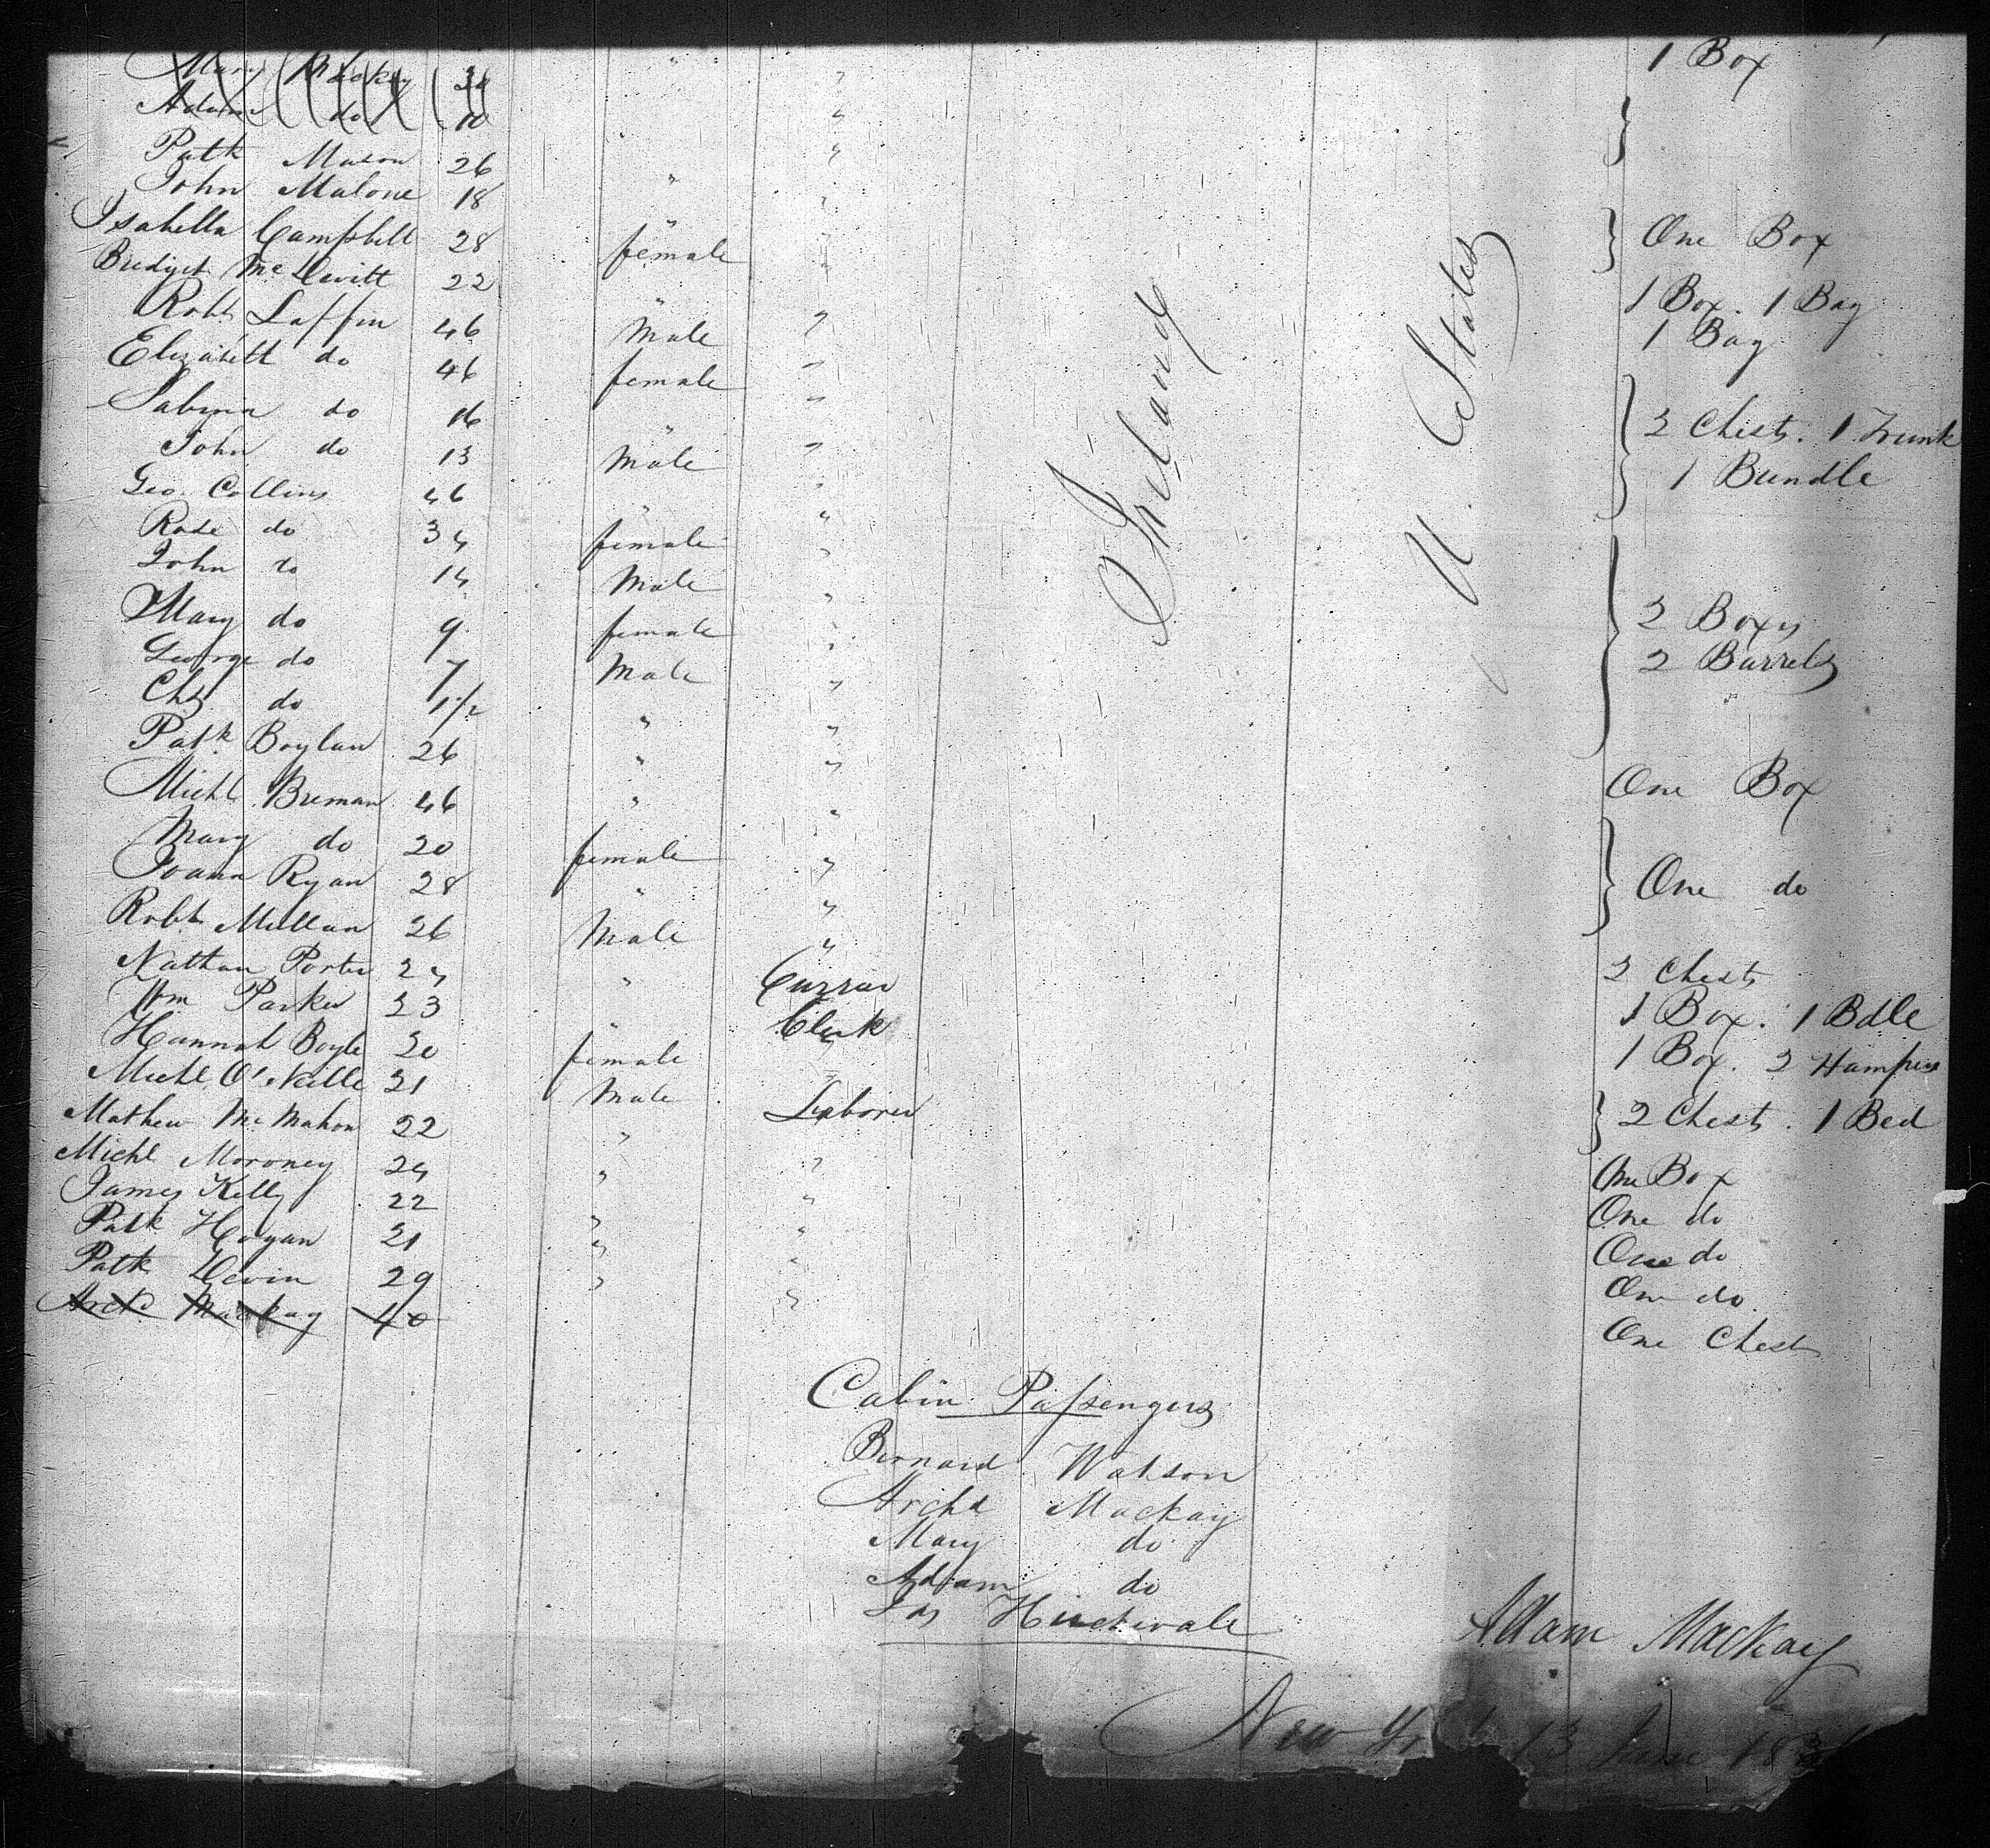 Mary Mackay 30 " " 1 Box
Adam do 10 "
Patk Mason 26 "
John Malone 18 " "
Isabella Campbell 28 female " One Box
Bridget McDevitt 22 " " 1 Box. 1 Bag
Robt Laffin 46 Male " 1 Bag
Elizabett do 46 female "
Sabina do 16 " " 2 Chests. 1 Trunk
John do 13 Male " 1 Bundle
Geo. Collins 46 " "
Rose do 34 female "
John do 14 Male "
Mary do 9 female " 2 Boxes
George do 7 Male " 2 Barrels
Chs do 1 1/2 " "
Patk Boylan 26 " "
Michl Brenan 46 " " One Box
Mary do 20 female "
Joana Ryan 28 " " One do
Robt Mullan 26 Male "
Nathan Porter 24 " Currier 2 Chests
Wm Parker 23 " Clerk 1 Box. 1 Bdle
Hannah Boyle 20 female " 1 Box. 2 Hampers
Michl O'Neille 21 Male Laborer
Mathew McMahon 22 " " 2 Chests. 1 Bed
Michl Moroney 24 " " One Box
James Kelly 22 " " One do
Patk Hogan 21 " " One do
Patk Devin 29 " " One do.
Archd Mackay 40 One Chest
Ireland
U. States
Cabin Passengers
Bernard Watson
Archd Mackay
Mary do
Adam do
Jas
Adam Mackay
New York 13 June